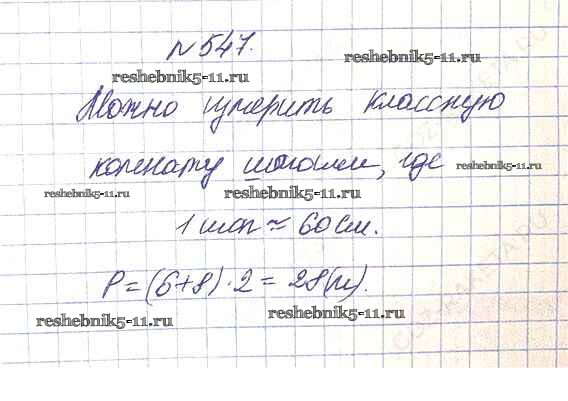 №547.
reshebnik5-11.ru
reshebnik5-11.ru
Можно измерить классную
комнату шагами, где
reshebnik5-11.ru
reshebnik5-11.ru
reshebnik5-11.ru
1 шаг ≈ 60 см.
P = (6+8)·2 = 28(м).
reshebnik5-11.ru
reshebnik5-11.ru